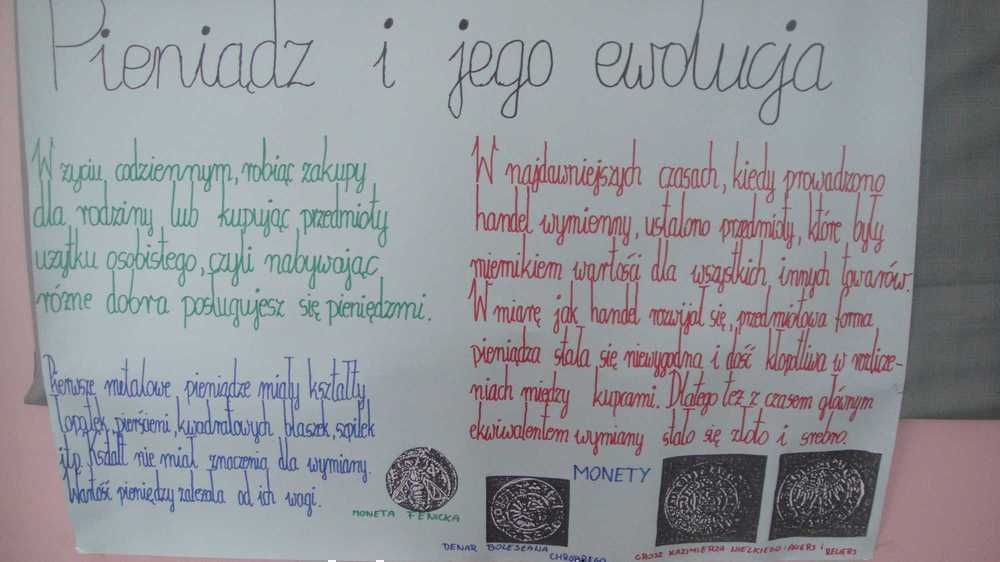 Pieniądz i jego ewolucja
W życiu codziennym, robiąc zakupy
dla rodziny lub kupując przedmioty
użytku osobistego, czyli nabywając
różne dobra posługujesz się pieniędzmi.
Pierwsze metalowe pieniądze miały kształty
łopatek, pierścieni, kwadratowych blaszek, szpilek
itp. Kształt nie miał znaczenia dla wymiany.
Wartość pieniędzy zależała od ich wagi.
W najdawniejszych czasach, kiedy prowadzono
handel wymienny, ustalono przedmioty, które były
miernikiem wartości dla wszystkich innych towarów.
W miarę jak handel rozwijał się, przedmiotowa forma
pieniądza stała się niewygodna i dość kłopotliwa w rozlicze-
niach między kupcami. Dlatego też z czasem głównym
ekwiwalentem wymiany stało się złoto i srebro.
MONETY
MONETA FENICKA
DENAR BOLESŁAWA
CHROBREGO
GROSZ KAZIMIERZA WIELKIEGO: AWERS i REWERS